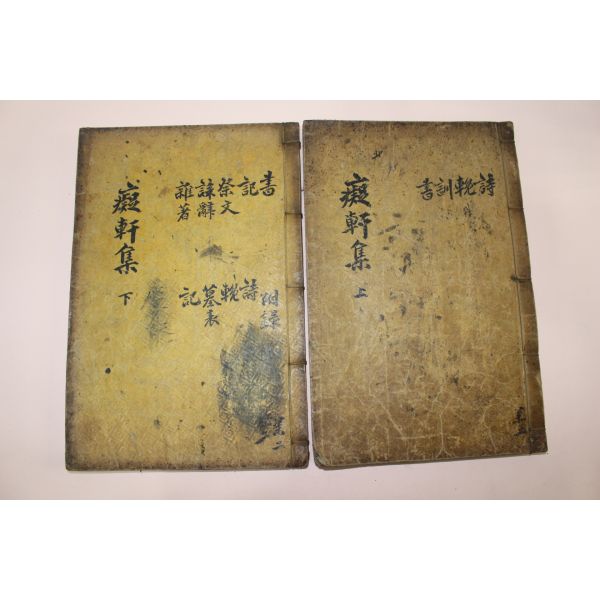 詩
輓
訓
書
癡軒集
上
書
記
祭文
誄辭
雜著
附錄
詩
輓
墓表
記
癡軒集
下